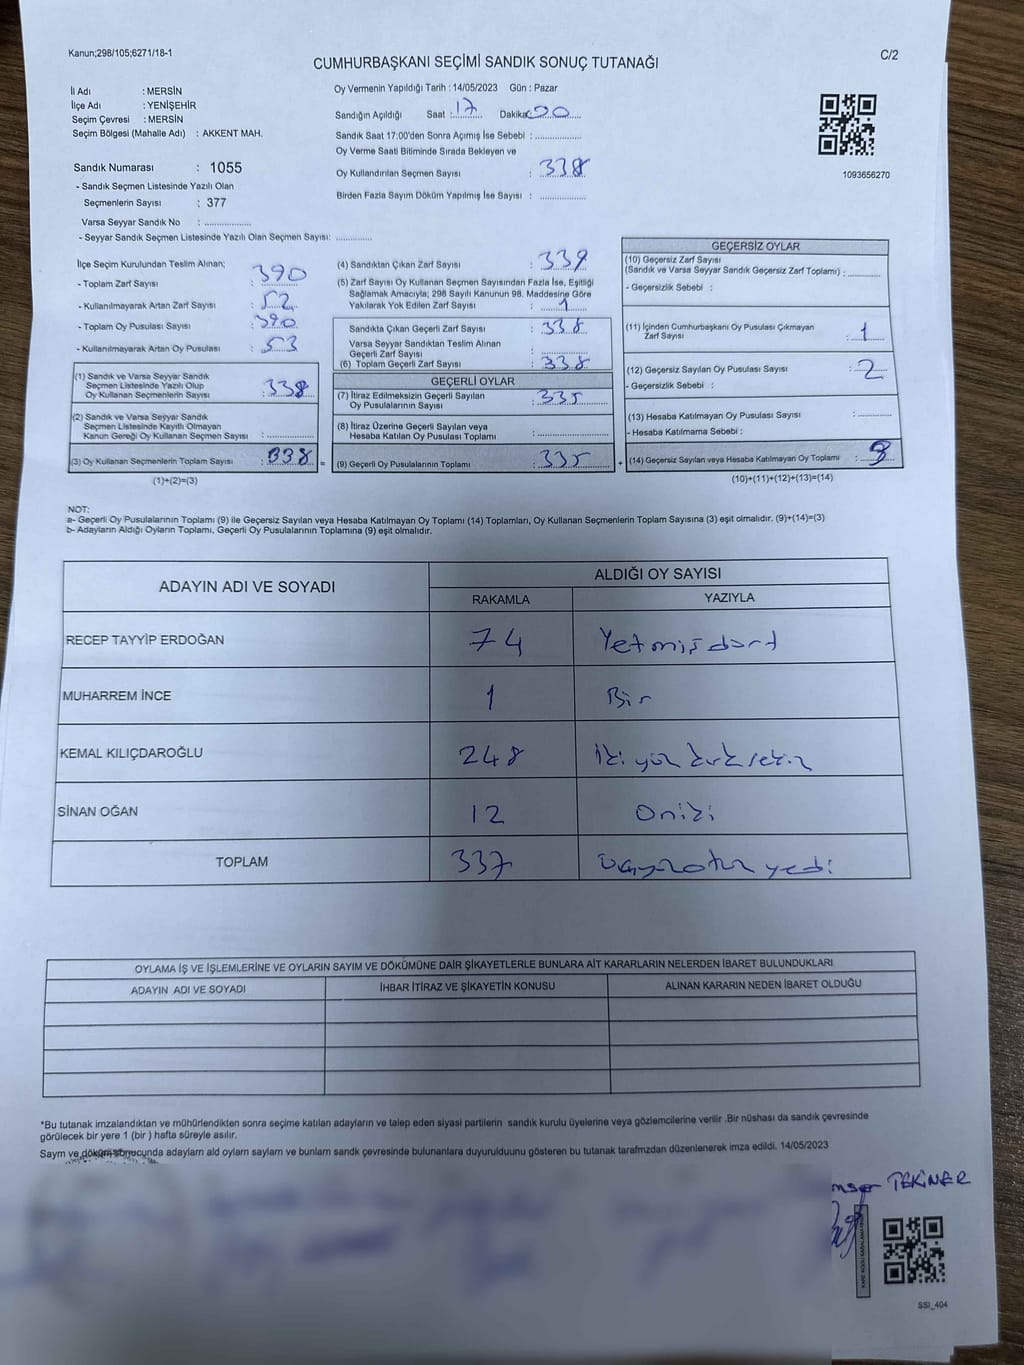 Kanun;298/105;6271/18-1
C/2
CUMHURBAŞKANI SEÇİMİ SANDIK SONUÇ TUTANAĞI
İl Adı : MERSİN
İlçe Adı : YENİŞEHİR
Seçim Çevresi : MERSİN
Seçim Bölgesi (Mahalle Adı) : AKKENT MAH.
Oy Vermenin Yapıldığı Tarih : 14/05/2023 Gün : Pazar
Sandığın Açıldığı Saat : 17 Dakika 00
Sandık Saat 17:00'den Sonra Açımış İse Sebebi : ..............
Oy Verme Saati Bitiminde Sırada Bekleyen ve
Oy Kullandırılan Seçmen Sayısı : 338
Birden Fazla Sayım Döküm Yapılmış İse Sayısı : ..............
1093656270
Sandık Numarası : 1055
- Sandık Seçmen Listesinde Yazılı Olan
Seçmenlerin Sayısı : 377
Varsa Seyyar Sandık No : ..............
- Seyyar Sandık Seçmen Listesinde Yazılı Olan Seçmen Sayısı: ...........
İlçe Seçim Kurulundan Teslim Alınan;
- Toplam Zarf Sayısı : 390
- Kullanılmayarak Artan Zarf Sayısı : 52
- Toplam Oy Pusulası Sayısı : 390
- Kullanılmayarak Artan Oy Pusulası : 53
(1) Sandık ve Varsa Seyyar Sandık
Seçmen Listesinde Yazılı Olup
Oy Kullanan Seçmenlerin Sayısı : 338
(2) Sandık ve Varsa Seyyar Sandık
Seçmen Listesinde Kayıtlı Olmayan
Kanun Gereği Oy Kullanan Seçmen Sayısı : ..............
(3) Oy Kullanan Seçmenlerin Toplam Sayısı : 338 =
(1)+(2)=(3)
(4) Sandıktan Çıkan Zarf Sayısı : 339
(5) Zarf Sayısı Oy Kullanan Seçmen Sayısından Fazla İse, Eşitliği
Sağlamak Amacıyla; 298 Sayılı Kanunun 98. Maddesine Göre
Yakılarak Yok Edilen Zarf Sayısı : 1
Sandıkta Çıkan Geçerli Zarf Sayısı : 338
Varsa Seyyar Sandıktan Teslim Alınan
Geçerli Zarf Sayısı : ..............
(6) Toplam Geçerli Zarf Sayısı : 338
GEÇERLİ OYLAR
(7) İtiraz Edilmeksizin Geçerli Sayılan
Oy Pusulalarının Sayısı : 335
(8) İtiraz Üzerine Geçerli Sayılan veya
Hesaba Katılan Oy Pusulası Toplamı : ..............
(9) Geçerli Oy Pusulalarının Toplamı : 335 +
GEÇERSİZ OYLAR
(10) Geçersiz Zarf Sayısı
(Sandık ve Varsa Seyyar Sandık Geçersiz Zarf Toplamı) : ..........
- Geçersizlik Sebebi :
(11) İçinden Cumhurbaşkanı Oy Pusulası Çıkmayan
Zarf Sayısı : 1
(12) Geçersiz Sayılan Oy Pusulası Sayısı : 2
- Geçersizlik Sebebi :
(13) Hesaba Katılmayan Oy Pusulası Sayısı : ..........
- Hesaba Katılmama Sebebi :
(14) Geçersiz Sayılan veya Hesaba Katılmayan Oy Toplamı : 3
(10)+(11)+(12)+(13)=(14)
NOT:
a- Geçerli Oy Pusulalarının Toplamı (9) ile Geçersiz Sayılan veya Hesaba Katılmayan Oy Toplamı (14) Toplamları, Oy Kullanan Seçmenlerin Toplam Sayısına (3) eşit olmalıdır. (9)+(14)=(3)
b- Adayların Aldığı Oyların Toplamı, Geçerli Oy Pusulalarının Toplamına (9) eşit olmalıdır.
ADAYIN ADI VE SOYADI
ALDIĞI OY SAYISI
RAKAMLA
YAZIYLA
RECEP TAYYİP ERDOĞAN 74 Yetmişdört
MUHARREM İNCE 1 Bir
KEMAL KILIÇDAROĞLU 248 İki yüz kırk sekiz
SİNAN OĞAN 12 Oniki
TOPLAM 337 Üçyüzotuz yedi
OYLAMA İŞ VE İŞLEMLERİNE VE OYLARIN SAYIM VE DÖKÜMÜNE DAİR ŞİKAYETLERLE BUNLARA AİT KARARLARIN NELERDEN İBARET BULUNDUKLARI
ADAYIN ADI VE SOYADI
İHBAR İTİRAZ VE ŞİKAYETİN KONUSU
ALINAN KARARIN NEDEN İBARET OLDUĞU
*Bu tutanak imzalandıktan ve mühürlendikten sonra seçime katılan adayların ve talep eden siyasi partilerin sandık kurulu üyelerine veya gözlemcilerine verilir .Bir nüshası da sandık çevresinde
görülecek bir yere 1 (bir ) hafta süreyle asılır.
Saym ve döküm sonucunda adaylarn ald oylarn saylarn ve bunlarn sandk çevresinde bulunanlara duyurulduunu gösteren bu tutanak tarafmzdan düzenlenerek imza edildi. 14/05/2023
TEKİNER
SSI_404